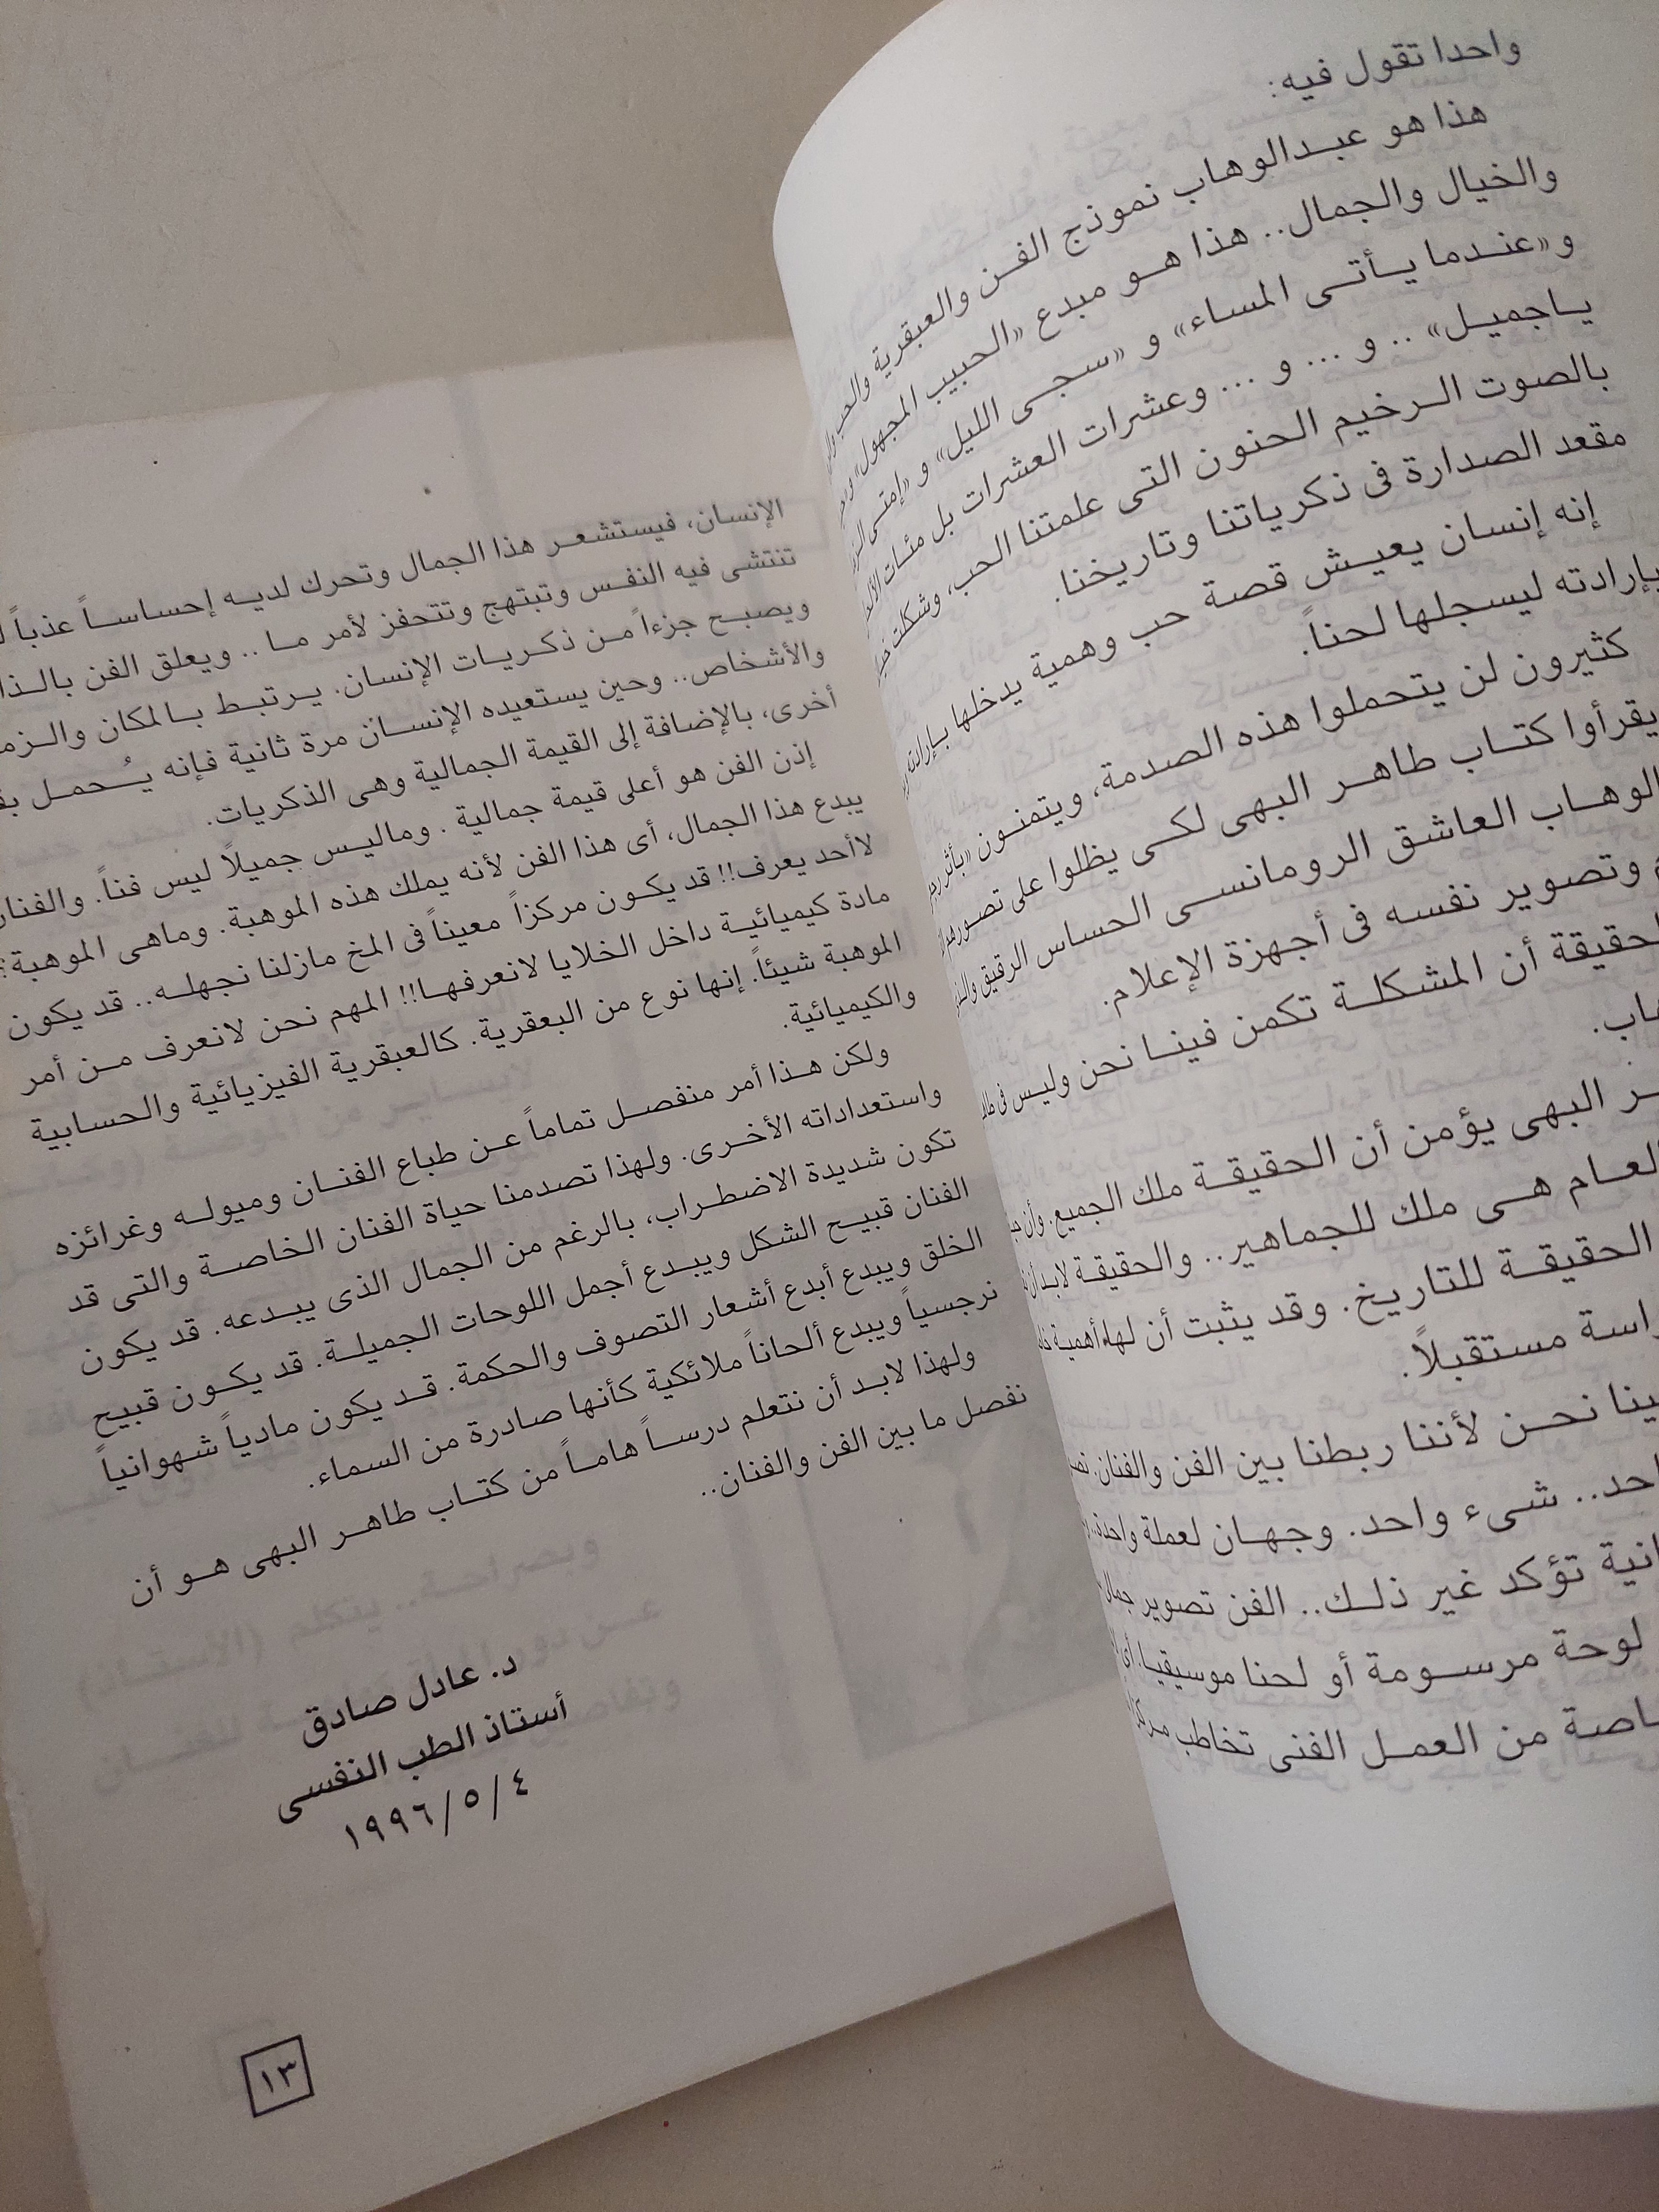 واحدا تقول فيه:
هذا هو عبدالوهاب نموذج الفن والعبقرية والحب
والخيال والجمال.. هذا هو مبدع «الحبيب المجهول»
و«عندما يأتى المساء» و «سجى الليل» و «إمتى الزمن
ياجميل» .. و ... و ... وعشرات العشرات بل مئات
بالصوت الرخيم الحنون التى علمتنا الحب، وشكلت
مقعد الصدارة فى ذكرياتنا وتاريخنا.
إنه إنسان يعيش قصة حب وهمية يدخلها بإرادته
بإرادته ليسجلها لحناً.
كثيرون لن يتحملوا هذه الصدمة، ويتمنون
يقرأوا كتاب طاهر البهى لكى يظلوا على
الوهاب العاشق الرومانسى الحساس الرقيق
وتصوير نفسه فى أجهزة الإعلام.
الحقيقة أن المشكلة تكمن فينا نحن وليس فى
البهى يؤمن أن الحقيقة ملك الجميع. وأن
العام هى ملك للجماهير.. والحقيقة لابد أن
الحقيقة للتاريخ. وقد يثبت أن لها أهمية
مستقبلاً.
فينا نحن لأننا ربطنا بين الفن والفنان.
شىء واحد. وجهان لعملة واحدة..
تؤكد غير ذلك.. الفن تصوير
لوحة مرسومة أو لحنا موسيقيا. أى
من العمل الفنى تخاطب
الإنسان، فيستشعر هذا الجمال وتحرك لديه إحساساً عذباً
تنتشى فيه النفس وتبتهج وتتحفز لأمر ما .. ويعلق الفن
ويصبح جزءاً من ذكريات الإنسان. يرتبط بالمكان
والأشخاص.. وحين يستعيده الإنسان مرة ثانية فإنه يُحمل
أخرى، بالإضافة إلى القيمة الجمالية وهى الذكريات.
إذن الفن هو أعلى قيمة جمالية . وماليس جميلاً ليس فناً. والفنان
يبدع هذا الجمال، أى هذا الفن لأنه يملك هذه الموهبة. وماهى الموهبة؟
لاأحد يعرف!! قد يكون مركزاً معيناً فى المخ مازلنا نجهله.. قد يكون
مادة كيميائية داخل الخلايا لانعرفها!! المهم نحن لانعرف من أمر
الموهبة شيئاً. إنها نوع من البعقرية. كالعبقرية الفيزيائية والحسابية
والكيميائية.
ولكن هذا أمر منفصل تماماً عن طباع الفنان وميوله وغرائزه
واستعداداته الأخرى. ولهذا تصدمنا حياة الفنان الخاصة والتى قد
تكون شديدة الاضطراب، بالرغم من الجمال الذى يبدعه. قد يكون
الفنان قبيح الشكل ويبدع أجمل اللوحات الجميلة. قد يكون قبيح
الخلق ويبدع أبدع أشعار التصوف والحكمة. قد يكون مادياً شهوانياً
نرجسياً ويبدع ألحاناً ملائكية كأنها صادرة من السماء.
ولهذا لابد أن نتعلم درساً هاماً من كتاب طاهر البهى هو أن
نفصل ما بين الفن والفنان..
د. عادل صادق
أستاذ الطب النفسى
٤ / ٥ / ١٩٩٦
١٣